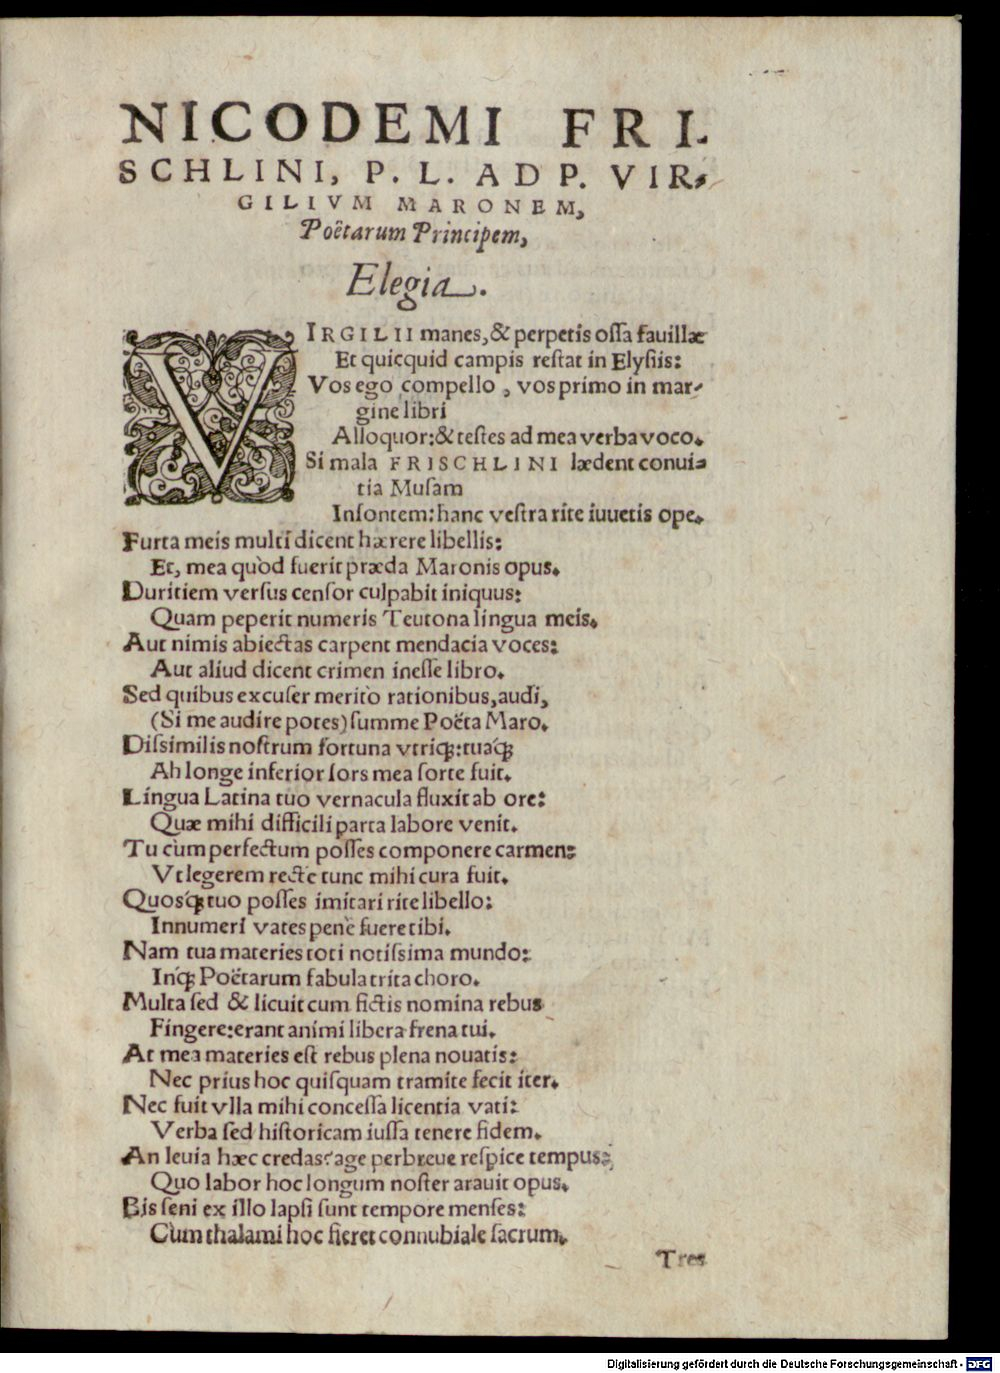 NICODEMI FRI-
SCHLINI, P. L. AD P. VIR-
GILIVM MARONEM,
Poëtarum Principem,
Elegia.
VIRGILII manes, & perpetis ossa fauillæ
Et quicquid campis restat in Elysiis:
Vos ego compello, vos primo in mar-
gine libri
Alloquor: & testes ad mea verba voco.
Si mala FRISCHLINI lædent conui-
tia Musam
Insontem: hanc vestra rite iuuetis ope.
Furta meis multi dicent hærere libellis:
Et, mea quòd fuerit præda Maronis opus.
Duritiem versus censor culpabit iniquus:
Quam peperit numeris Teutona lingua meis.
Aut nimis abiectas carpent mendacia voces:
Aut aliud dicent crimen inesse libro.
Sed quibus excuser meritò rationibus, audi,
(Si me audire potes) summe Poëta Maro.
Dissimilis nostrum fortuna vtriq́;: tuaq́;
Ah longe inferior sors mea sorte fuit.
Lingua Latina tuo vernacula fluxit ab ore:
Quæ mihi difficili parta labore venit.
Tu cùm perfectum posses componere carmen:
Vt legerem rectè tunc mihi cura fuit.
Quosq́; tuo posses imitari rite libello:
Innumeri vates penè fuere tibi.
Nam tua materies toti notissima mundo:
Inq́; Poëtarum fabula trita choro.
Multa sed & licuit cum fictis nomina rebus
Fingere: erant animi libera frena tui.
At mea materies est rebus plena nouatis:
Nec prius hoc quisquam tramite fecit iter.
Nec fuit vlla mihi concessa licentia vati:
Verba sed historicam iussa tenere fidem.
An leuia hæc credas? age perbreue respice tempus:
Quo labor hoc longum noster arauit opus.
Bis seni ex illo lapsi sunt tempore menses:
Cùm thalami hoc fieret connubiale sacrum.
Tres
Digitalisierung gefördert durch die Deutsche Forschungsgemeinschaft - DFG